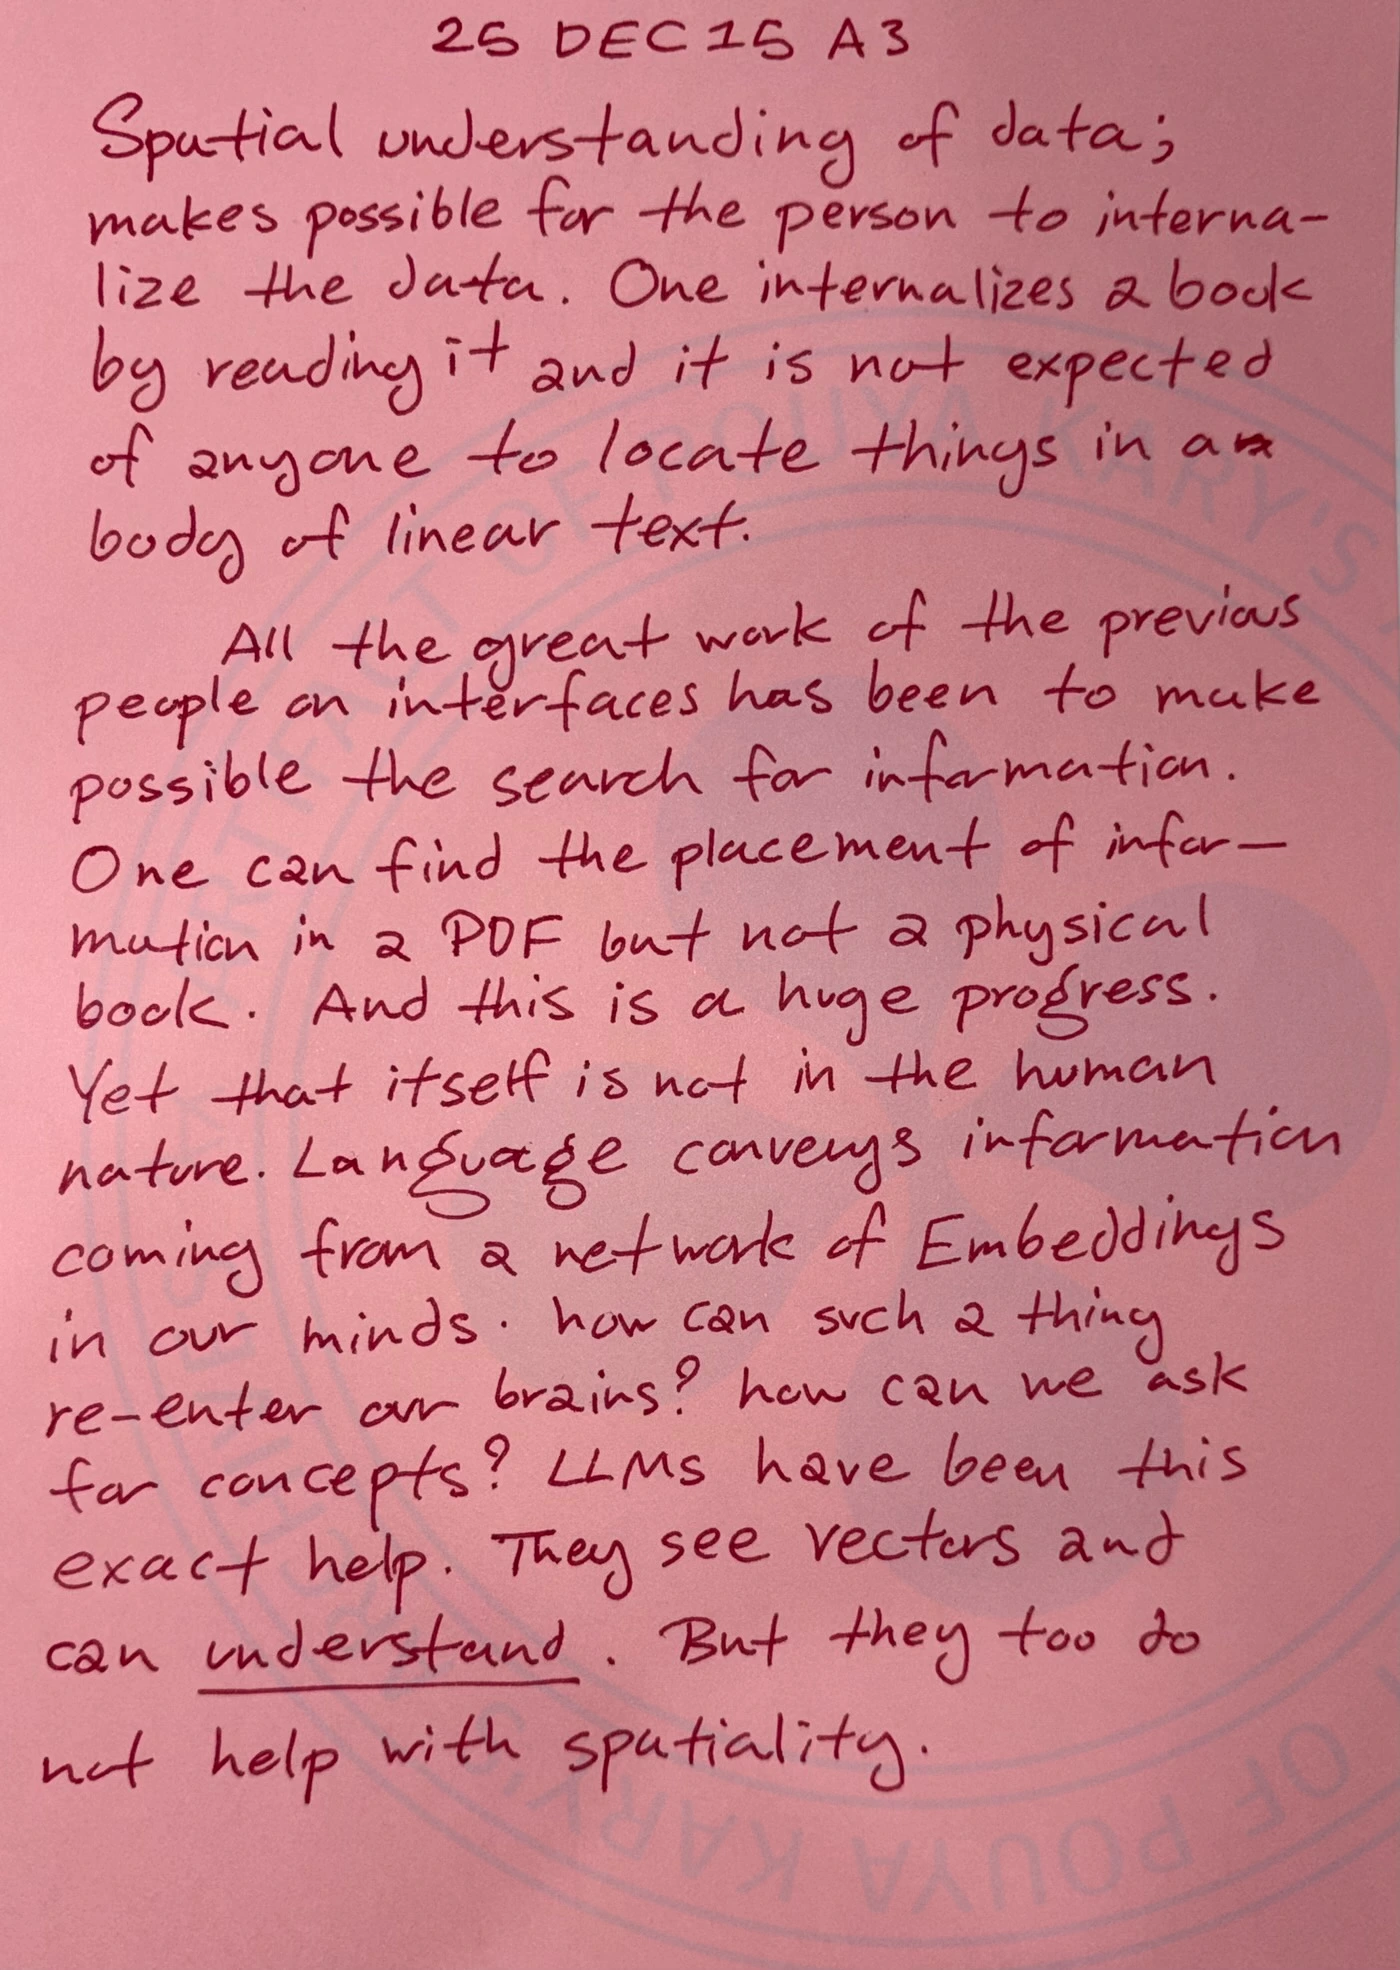 25 DEC 15 A3
Spatial understanding of data;
makes possible for the person to interna-
lize the data. One internalizes a book
by reading it and it is not expected
of anyone to locate things in a
body of linear text.
All the great work of the previous
people on interfaces has been to make
possible the search for information.
One can find the placement of infor-
mation in a PDF but not a physical
book. And this is a huge progress.
Yet that itself is not in the human
nature. Language conveys information
coming from a network of Embeddings
in our minds. how can such a thing
re-enter our brains? how can we ask
for concepts? LLMs have been this
exact help. They see vectors and
can understand. But they too do
not help with spatiality.
ARTEFACT OF POUYA KARY'S
OF POUYA KARY'S